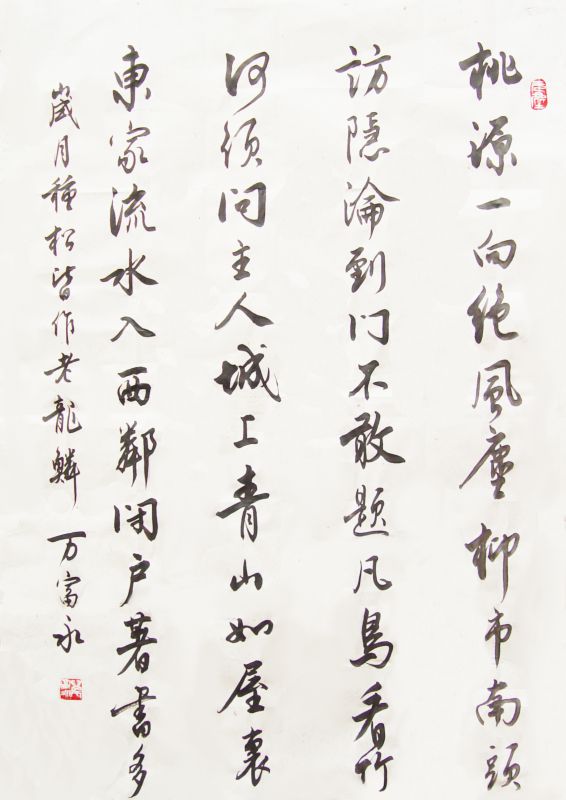 桃源一向绝風塵柳市南頭
訪隱淪到门不敢题凡鳥看竹
何须问主人城上青山如屋裏
東家流水入西鄰闭户著書多
歲月種松皆作老龍鳞 万富永